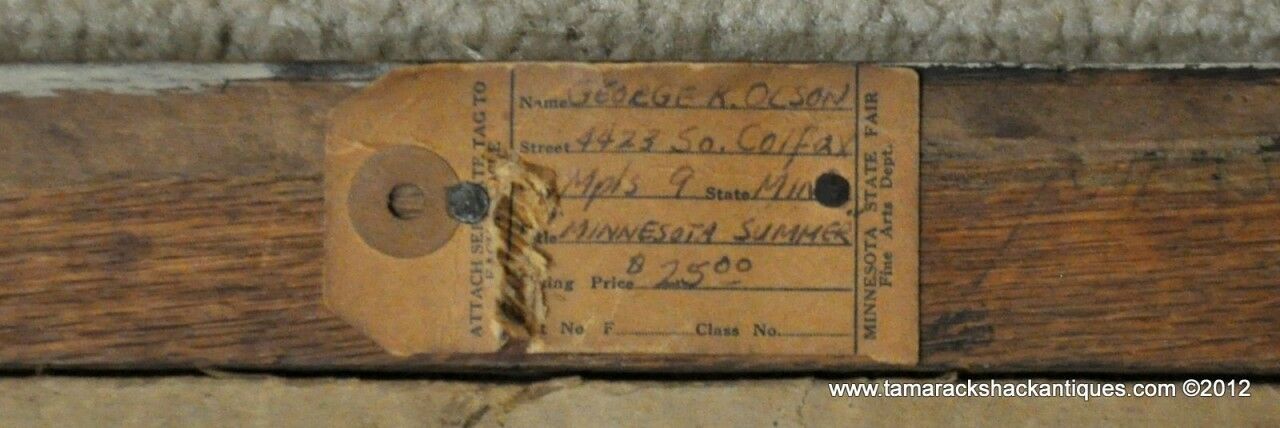 ATTACH TAG TO
Name GEORGE K. OLSON
Street 4423 So. Colfax
Mpls 9 State
MINNESOTA SUMMER
Price $25.00
No F. Class No.
MINNESOTA STATE FAIR
Fine Arts Dept.
www.tamarackshackantiques.com ©2012